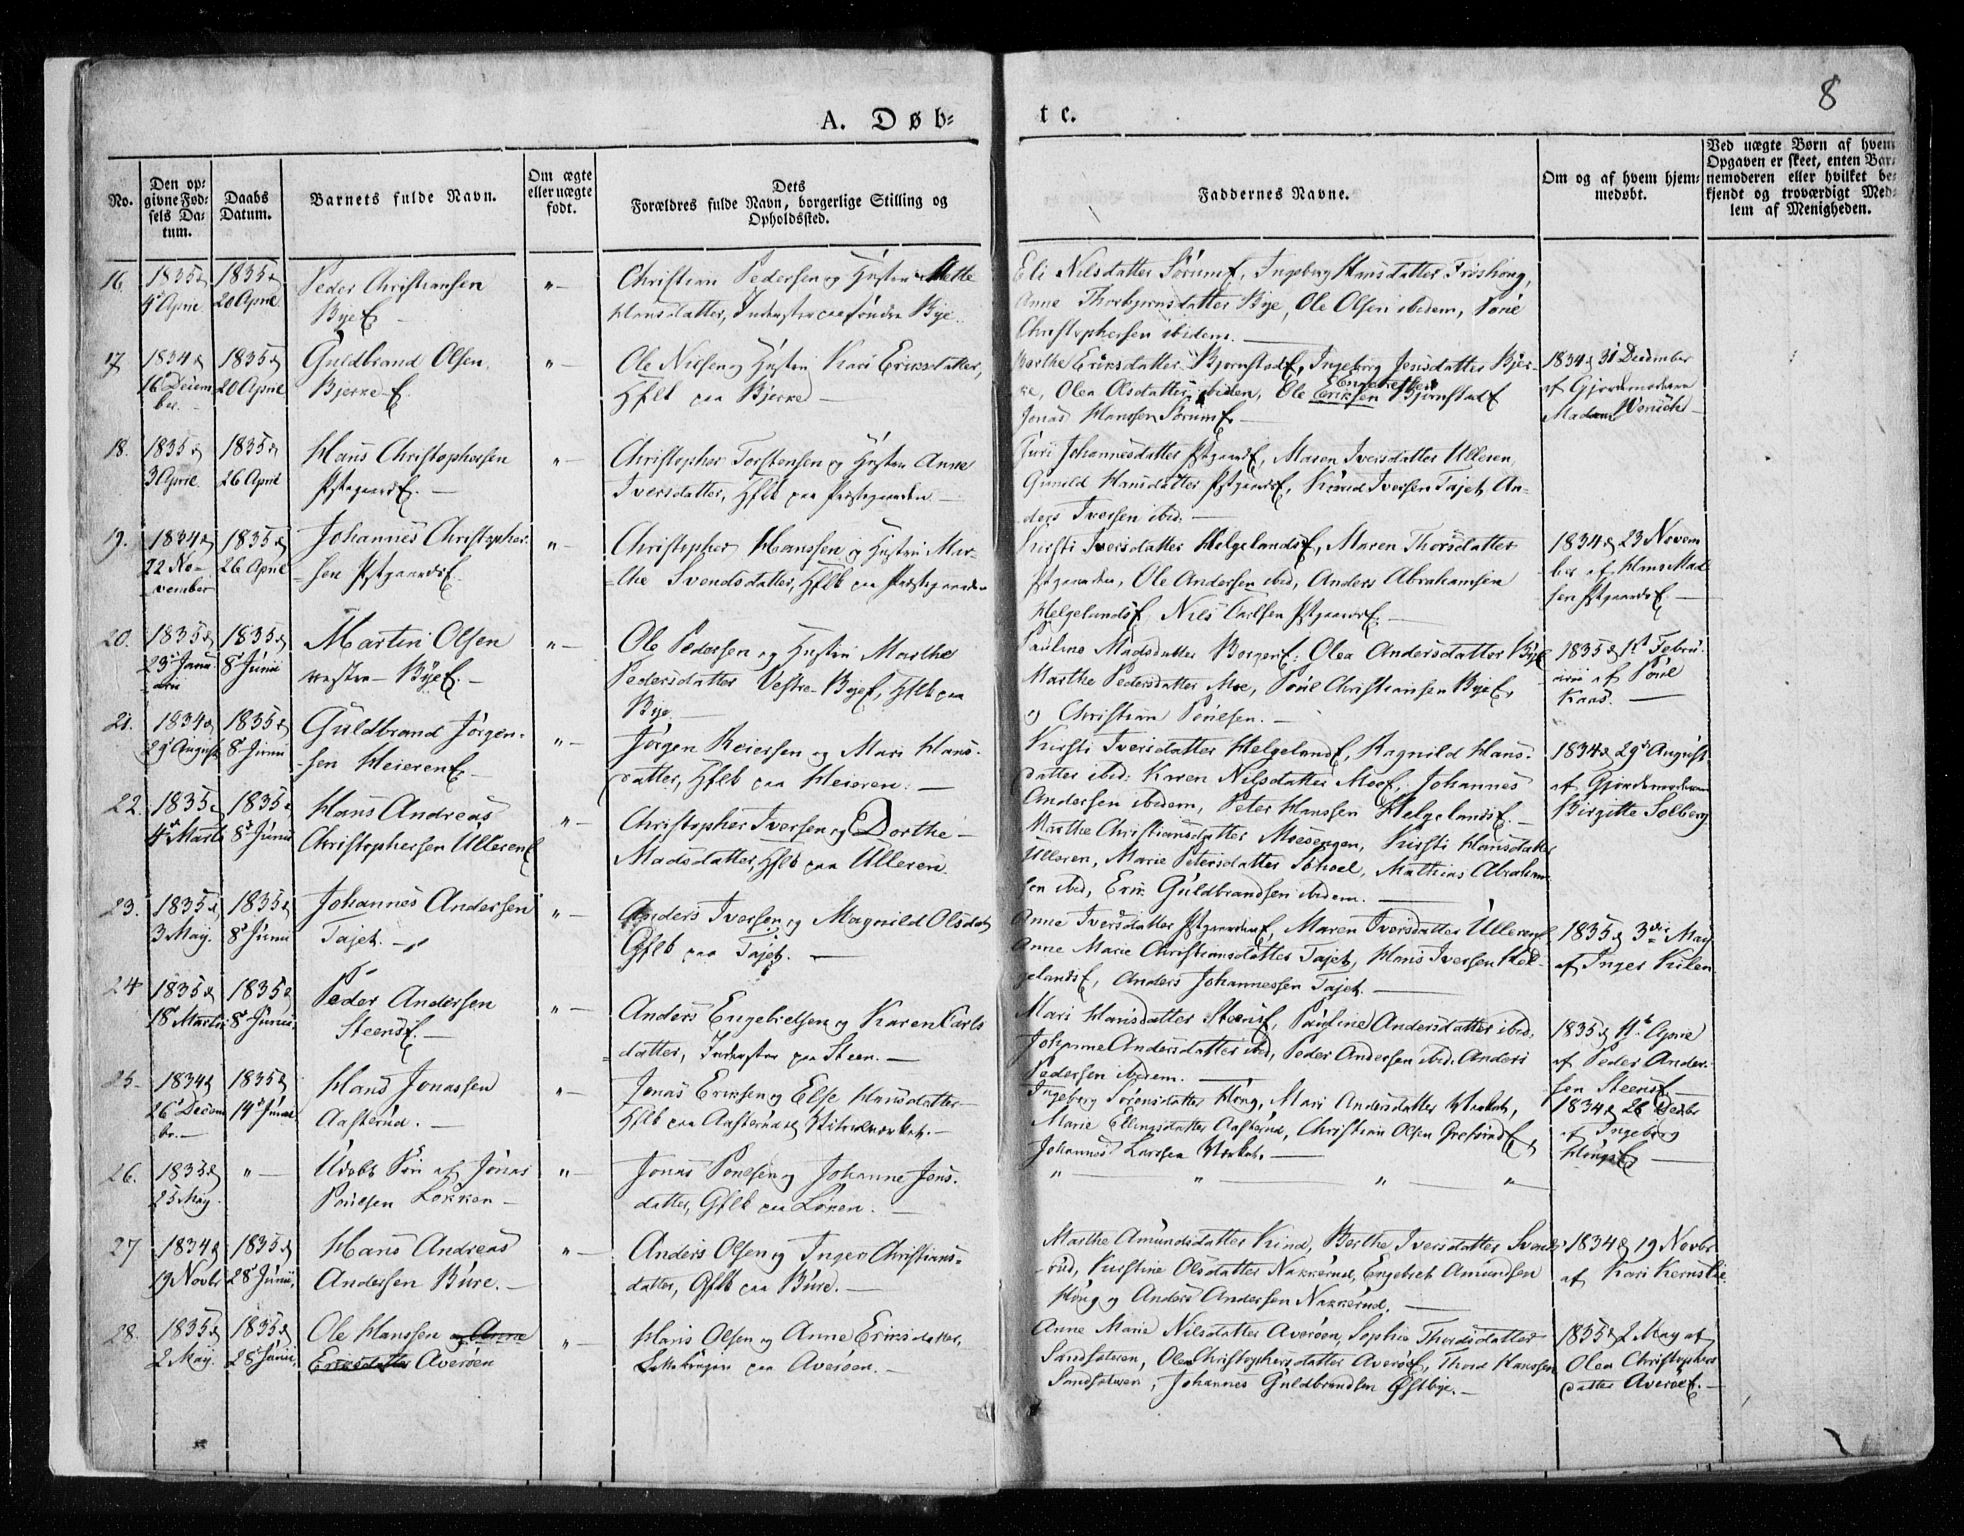 8
A. Døb=
te.
No.
Den op=
givne Fød=
sels Da=
tum.
Daabs
Datum.
Barnets fulde Navn.
Om ægte
eller uægte
født.
Dets
Forældres fulde Navn, borgerlige Stilling og
Opholdssted.
Faddernes Navne.
Om og af hvem hjem=
medøbt.
Ved uægte Børn af hvem
Opgaven er skeet, enten Bar=
nemoderen eller hvilket be=
kjendt og troværdigt Med=
lem af Menigheden.
16.
1835 d
4de April
1835 d
20 April
Peder Christiansen
Bye E.
"—
Christian Pedersen og Hustru Mette
Hansdatter, Inderster paa søndre Bye.
Eli Nilsdatter Sørum E, Ingeborg Hansdatter Frøshoug,
Anne Thorbjørnsdatter Bye, Ole Olsen ibidem, Poul
Christophersen ibidem. —
17
1834 d
16 Decem
ber. —
1835 d
20 April
Guldbrand Olsen
Bjerke E.
"—
Ole Nilsen og Hustru Kari Eriksdatter,
Gflb paa Bjerke —
Berthe Eriksdatter Bjørnstad E, Ingeborg Jensdatter Bjer-
ke, Olea Olsdatter ibidem, Ole Eriksen Bjørnstad E
Jonas Hanssen Sørum E. —
1834 d 31 December
af Gjordemoderen
Madame Wenick —
18.
1835 d
3 April
1835 d
26 April
Hans Christophersen
Pstgaard E. —
"—
Christopher Torstensen og Hustru Anne
Iversdatter, Hflb paa Præstegaarden —
Guri Johannesdatter Pstgaard E, Maren Iversdatter Ulleren,
Gunild Hansdatter Pstgaard E, Knud Iversen Tajet, An-
ders Iversen ibid. —
19.
1834 d
22 No-
vember
1835 d
26 April
Johannes Christopher
=sen Pstgaards E.
"—
Christopher Hanssen og Hustru Mar-
=the Svendsdatter, Hflb paa Præstegaarden
Kirsti Iversdatter Helgelands E, Maren Thorsdatter
Pstgaarden, Ole Andersen ibid, Anders Abrahamsen
Helgelands E, Nils Carlsen Pstgaards E. —
1834 d 23 Novem
ber af Hans Mad
sen Pstgaards E. —
20.
1835 d
29 Janu
arii
1835 d
8de Junii
Martin Olsen
vestre Bye E. —
"—
Ole Pedersen og Hustru Marthe
Pedersdatter Vestre Bye E, Hflb paa
Bye. —
Pauline Madsdatter Borgen E: Olea Andersdatter Bye
Marthe Pedersdatter Moe, Poul Christiansen Bye E,
og Christian Poulsen. —
1835 d 1st Febru
arii af Poul
Kaas. —
21.
1834 d
29 August
1835 d
8de Junii
Guldbrand Jörgen-
-sen Heieren E —
"—
Jörgen Reiersen og Mari Hans-
datter, Hflb paa Heieren. —
Kirsti Iversdatter Helgeland E, Ragnild Hans-
datter ibid: Karen Nilsdatter Moe E, Johannes
Andersen ibidem, Peter Hanssen Helgelands E. —
1834 d 29de August
af Gjordemoderen
Birgitte Solberg
22.
1835 d
4de Marts
1835 d
8de Junii
Hans Andreas
Christophersen Ulleren E
"—
Christopher Iversen og Dorthe —
Madsdatter, Hflb paa Ulleren.
Marthe Christiansdatter Moesengen, Kirsti Hansdatter
Ulleren, Marie Petersdatter Søhoel, Mathias Abraham-
sen ibid, Erik Guldbrandsen ibidem. —
23.
1835 d
3 May.
1835 d
8de Junii
Johannes Andersen
Tajet. —
"—
Anders Iversen og Magnild Olsdatt
Gflb paa Tajet. —
Anne Iversdatter Pstgaarden E, Maren Iversdatter Ulleren E
Anne Marie Christiansdatter Tajet, Hans Iversen Hel-
gelands E, Anders Johannessen Tajet. —
1835 d 3die May
af Inger Kilen
24
1835 d
18de Martii
1835 d
8de Junii
Peder Andersen
Steens E. —
"—
Anders Engebretsen og Karen Carls
=datter, Inderster paa Steen. —
Mari Hansdatter Steens E, Pauline Andersdatter ibid.
Johanne Andersdatter ibid, Peder Andersen ibid. Anders
Pedersen ibidem. —
1835 d 11te April
af Peder Ander-
sen Steens E
25
1834 d
26de Decem
br. —
1835 d
14de Junii
Hans Jonassen
Aasterud. —
"—
Jonas Eriksen og Else Hansdatter
Hflb paa Aasterud Vitriolværket. —
Ingeborg Sörensdatter Houg, Mari Andersdatter Værket,
Marie Ellingsdatter Aasterud, Christian Olsen Grefsrud E,
Johannes Larssen Værket. —
1834 d 28 Decbr
af Ingeborg
Hougs E —
26.
1835 d
25 May.
"—
Udøbt Søn af Jonas
Poulsen Løkken —
"
Jonas Poulsen og Johanne Jons-
datter, Gflb paa Løken. —
" — " — " — "
27
1834 d
19 Novbr
1835 d
28de Junii,
Hans Andreas
Andersen Bure. —
"—
Anders Olsen og Inger Christians-
datter, Gflb paa Bure. —
Marthe Amundsdatter Kind, Berthe Iversdatter Svends-
rud, Kirstine Olsdatter Nakkerud, Engebret Amundsen
Houg og Anders Andersen Nakkerud. —
1834 d 19 Novbr
af Kari Kernslie
28.
1835 d
2 May.
1835 d
28de Junii,
Ole Hanssen og Anne
Ericsdatter Averöen
"—
Hans Olsen og Anne Ericsdatter,
paa Averöen. —
Anne Marie Nilsdatter Averöen, Sophie Thordsdatter
Sandsateren, Olea Christophersdatter Averöe E, Thore Hanssen
Sandsateren, Johannes Guldbrandsen Østbye. —
1835 d 2 May af
Olea Christophers
datter Averöe E. —